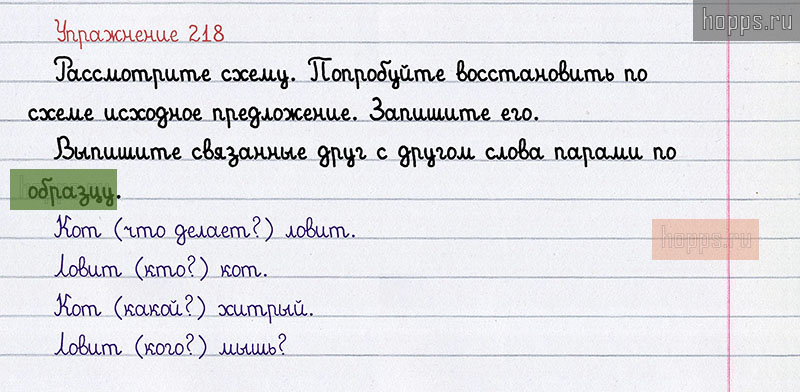 hopps.ru
Упражнение 218
Рассмотрите схему. Попробуйте восстановить по
схеме исходное предложение. Запишите его.
Выпишите связанные друг с другом слова парами по
образцу.
Кот (что делает?) ловит.
hopps.ru
Ловит (кто?) кот.
Кот (какой?) хитрый.
Ловит (кого?) мышь?